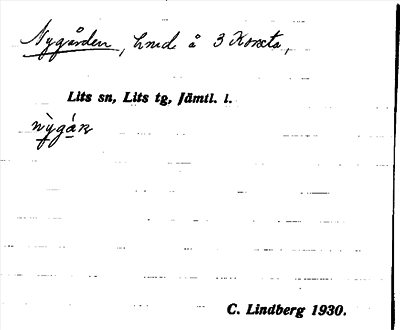 Nygården, hmd å 3 Korsta,
Lits sn, Lits tg, Jämtl. l.
C. Lindberg 1930.